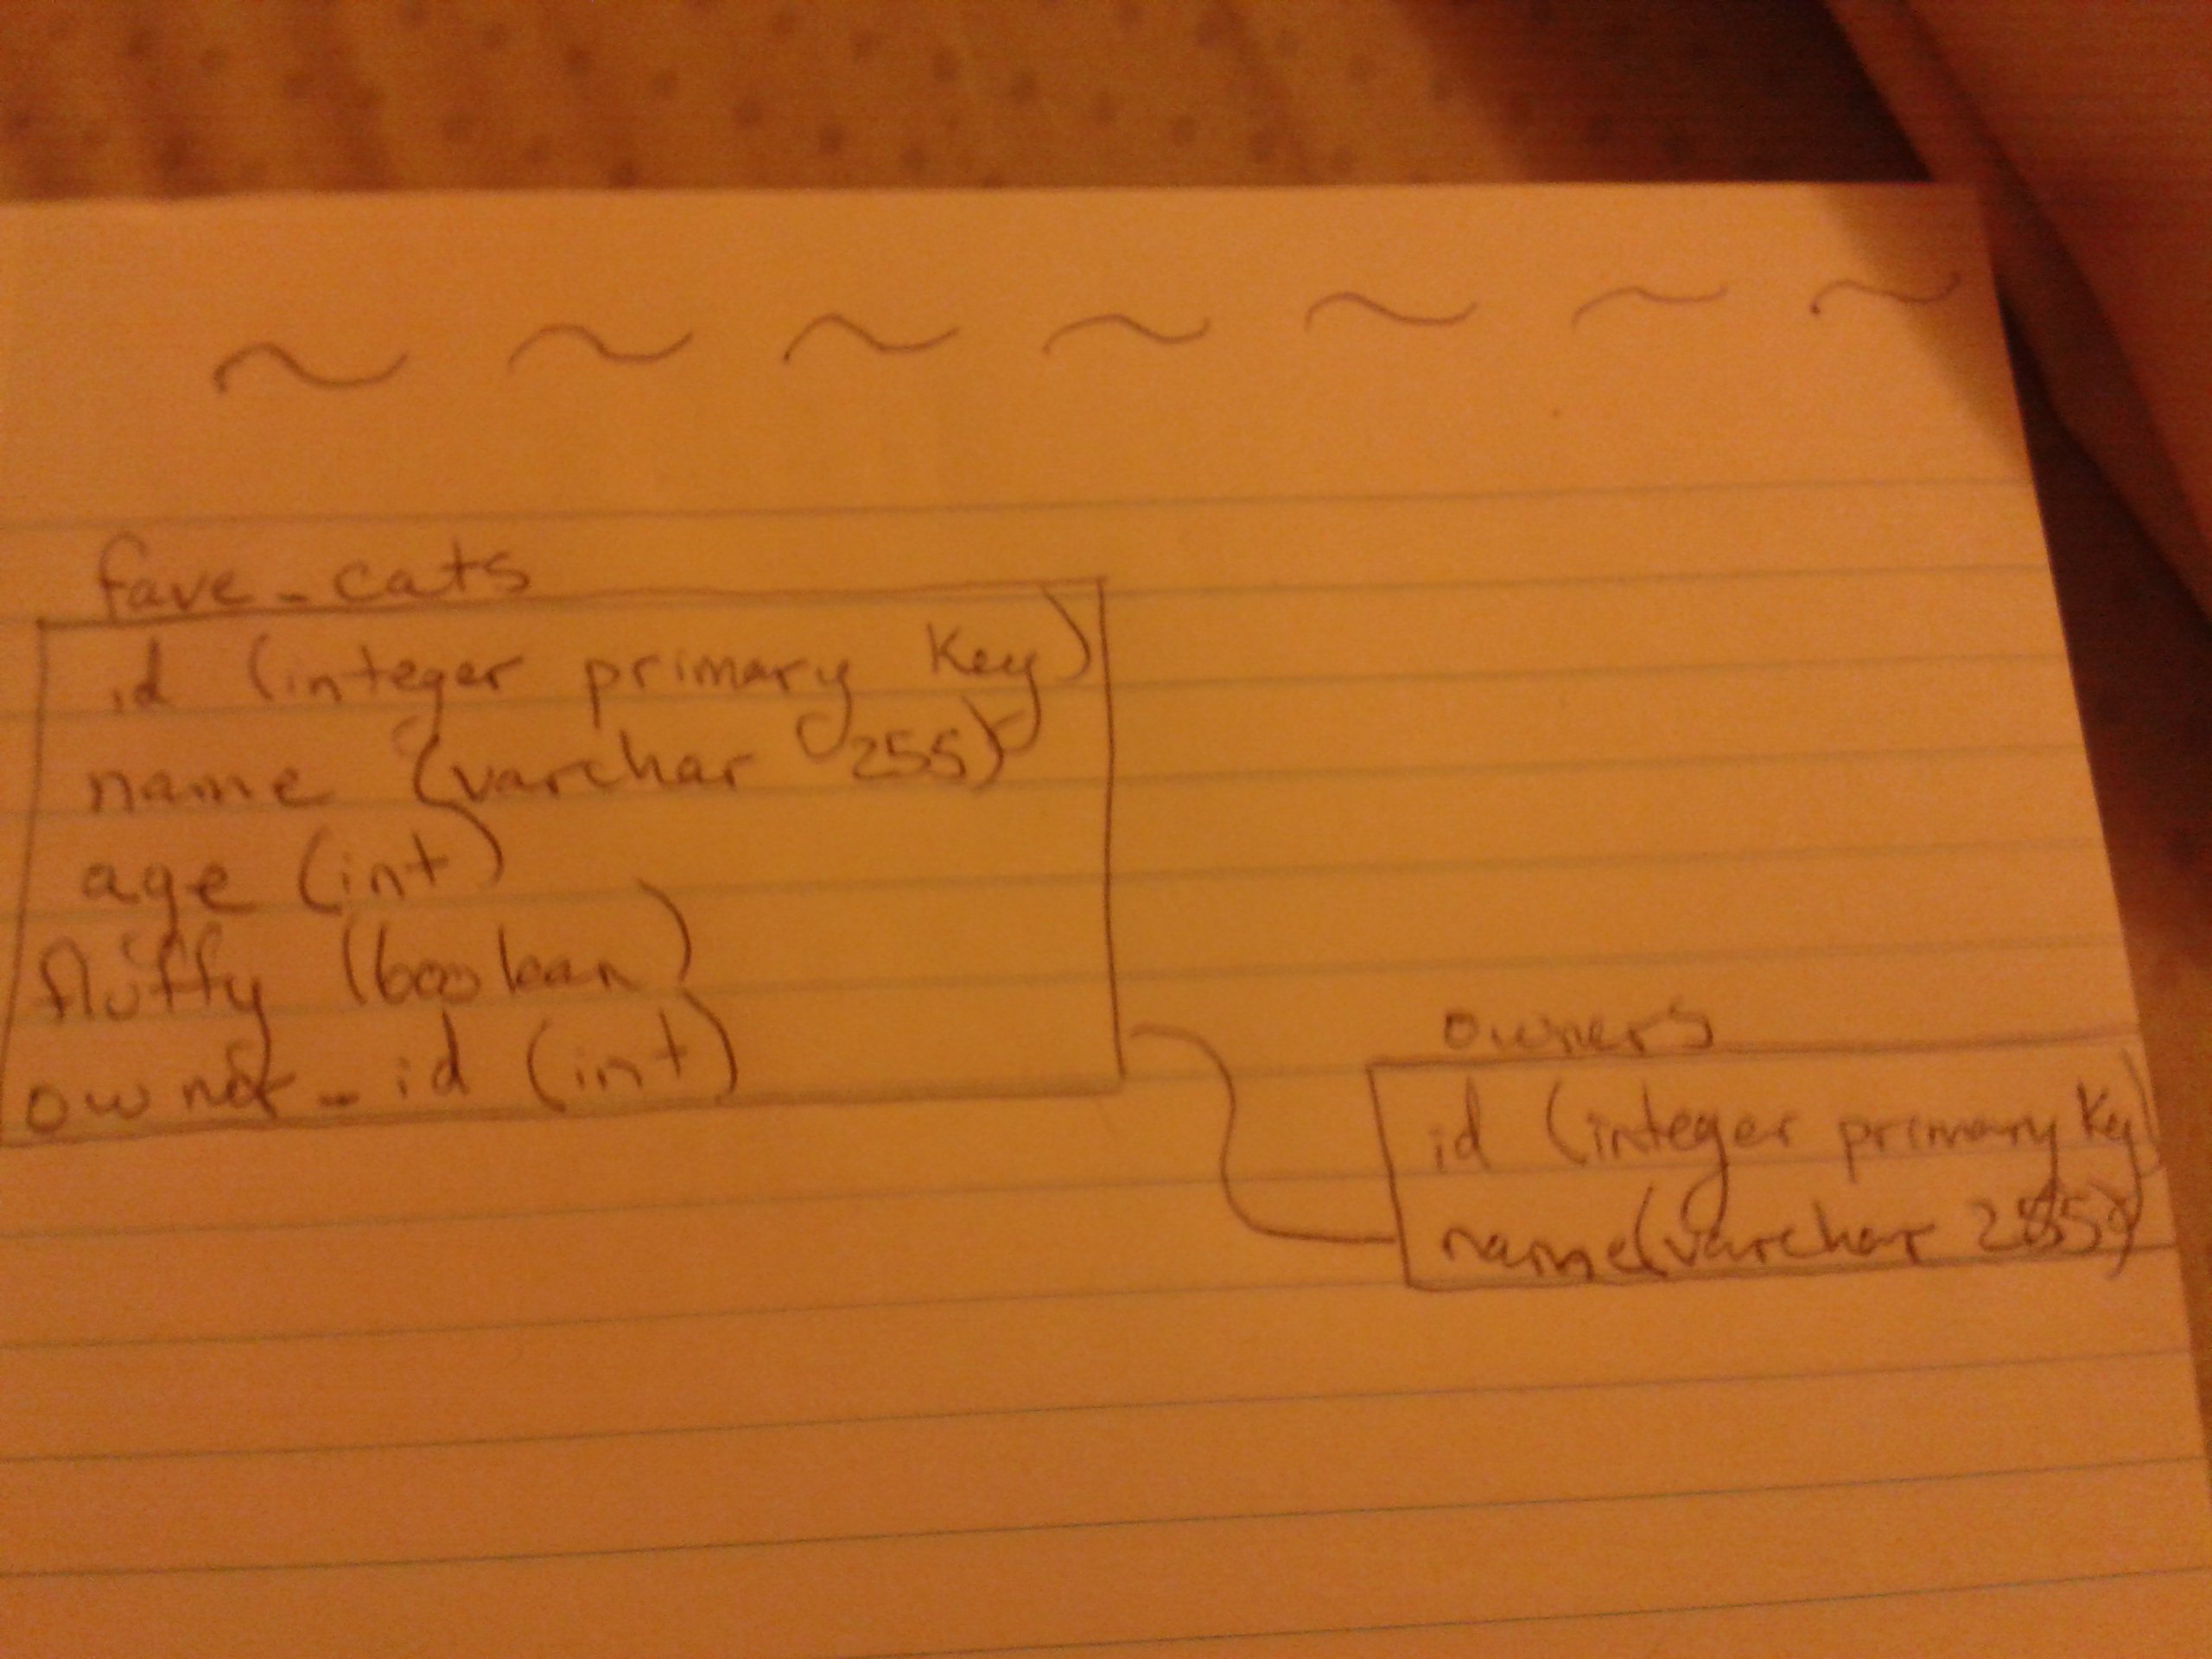 fave_cats
id (integer primary key)
name (varchar 255)
age (int)
fluffy (boolean)
owner_id (int)
owners
id (integer primary key)
name (varchar 255)